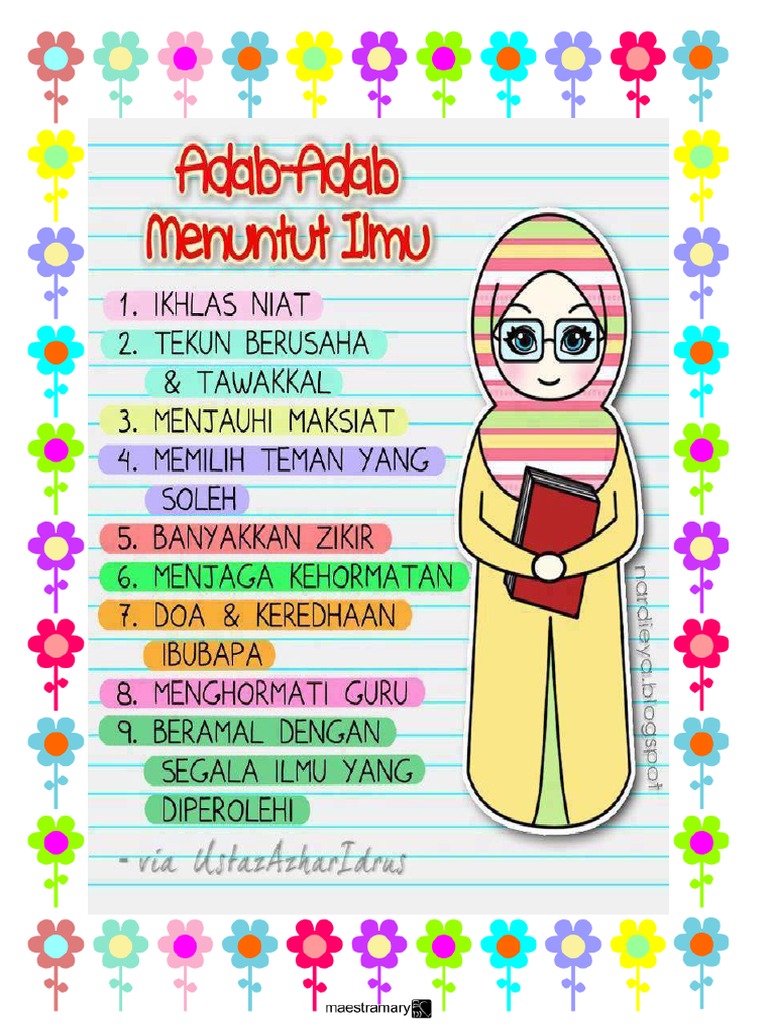 Adab-Adab
Menuntut Ilmu
1. IKHLAS NIAT
2. TEKUN BERUSAHA
& TAWAKKAL
3. MENJAUHI MAKSIAT
4. MEMILIH TEMAN YANG
SOLEH
5. BANYAKKAN ZIKIR
6. MENJAGA KEHORMATAN
7. DOA & KEREDHAAN
IBUBAPA
8. MENGHORMATI GURU
9. BERAMAL DENGAN
SEGALA ILMU YANG
DIPEROLEHI
- via UstazAzharIdrus
nardieya.blogspot
maestramary